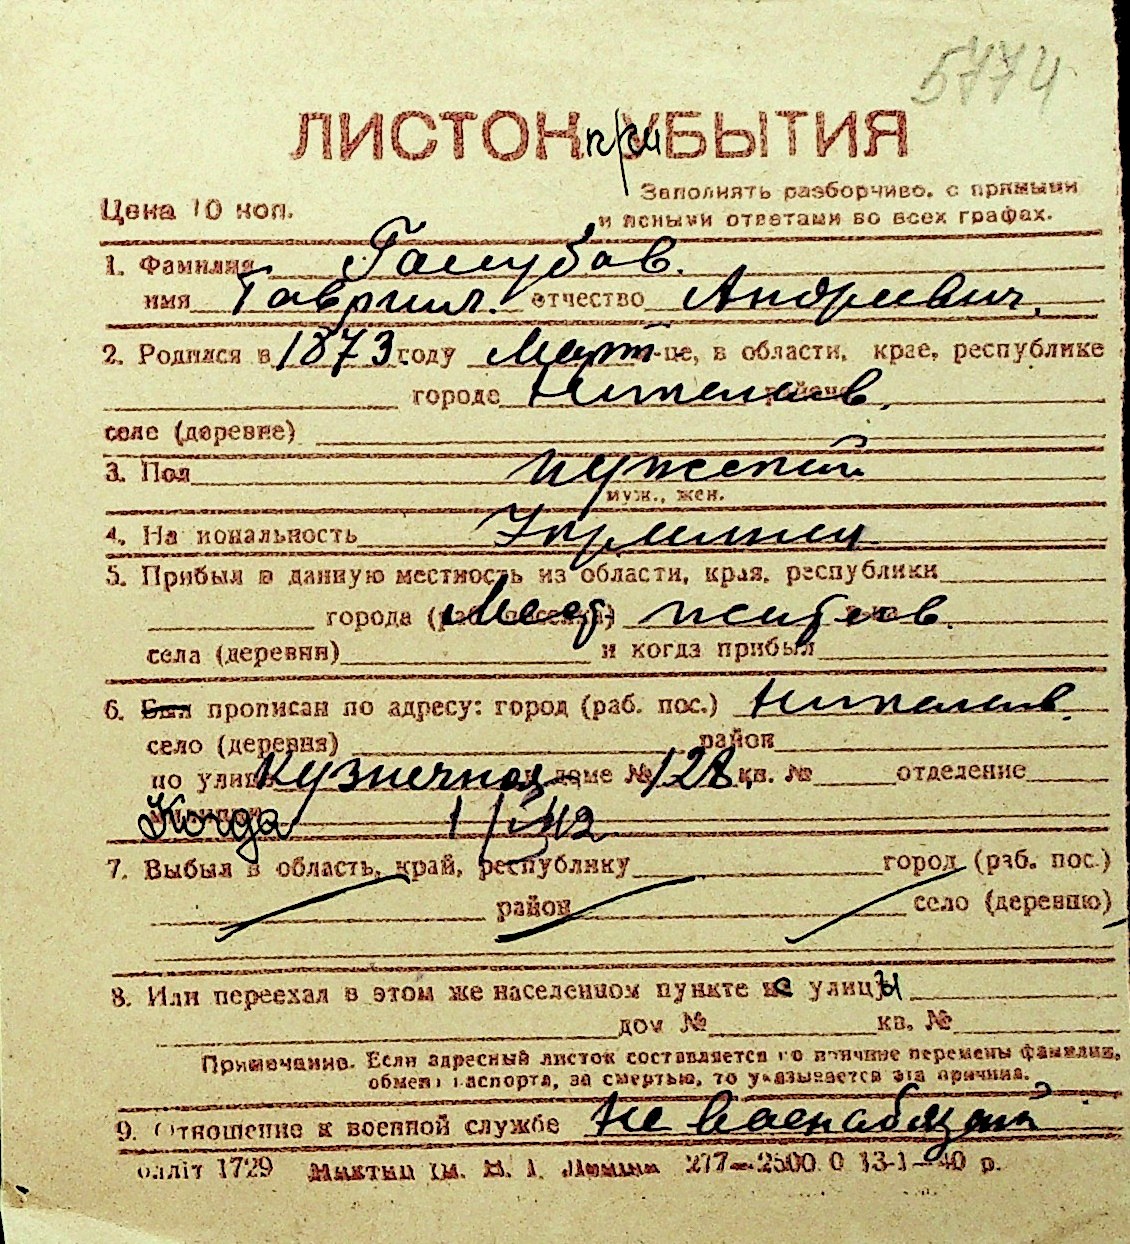 5774
ЛИСТОК при УБЫТИЯ
Цена 10 коп.
Заполнять разборчиво, с прямыми
и ясными ответами во всех графах.
1. Фамилия Голубов.
имя Гавриил. отчество Андреевич.
2. Родился в 1873 году Март -це, в области, крае, республике
городе Николаев. районе
селе (деревне)
3. Пол мужской
муж., жен.
4. Национальность Украинец
5. Прибыл в данную местность из области, края, республики
города (раб. поселка) Мест жителев.
села (деревни) и когда прибыл
6. Был прописан по адресу: город (раб. пос.) Николаев.
село (деревня) район
по улице Кузнечной в доме № 128, кв. № отделение
милиции Когда 1/ 42
7. Выбыл в область, край, республику город (раб. пос.)
район село (деревню)
8. Или переехал в этом же населенном пункте с улицы
дом № кв. №
Примечание. Если адресный листок составляется по причине перемены фамилии,
обмена паспорта, за смертью, то указывается эта причина.
9. Отношение к военной службе Не военнообязан
олліт 1729 277—2500.0 13-1—40 р.